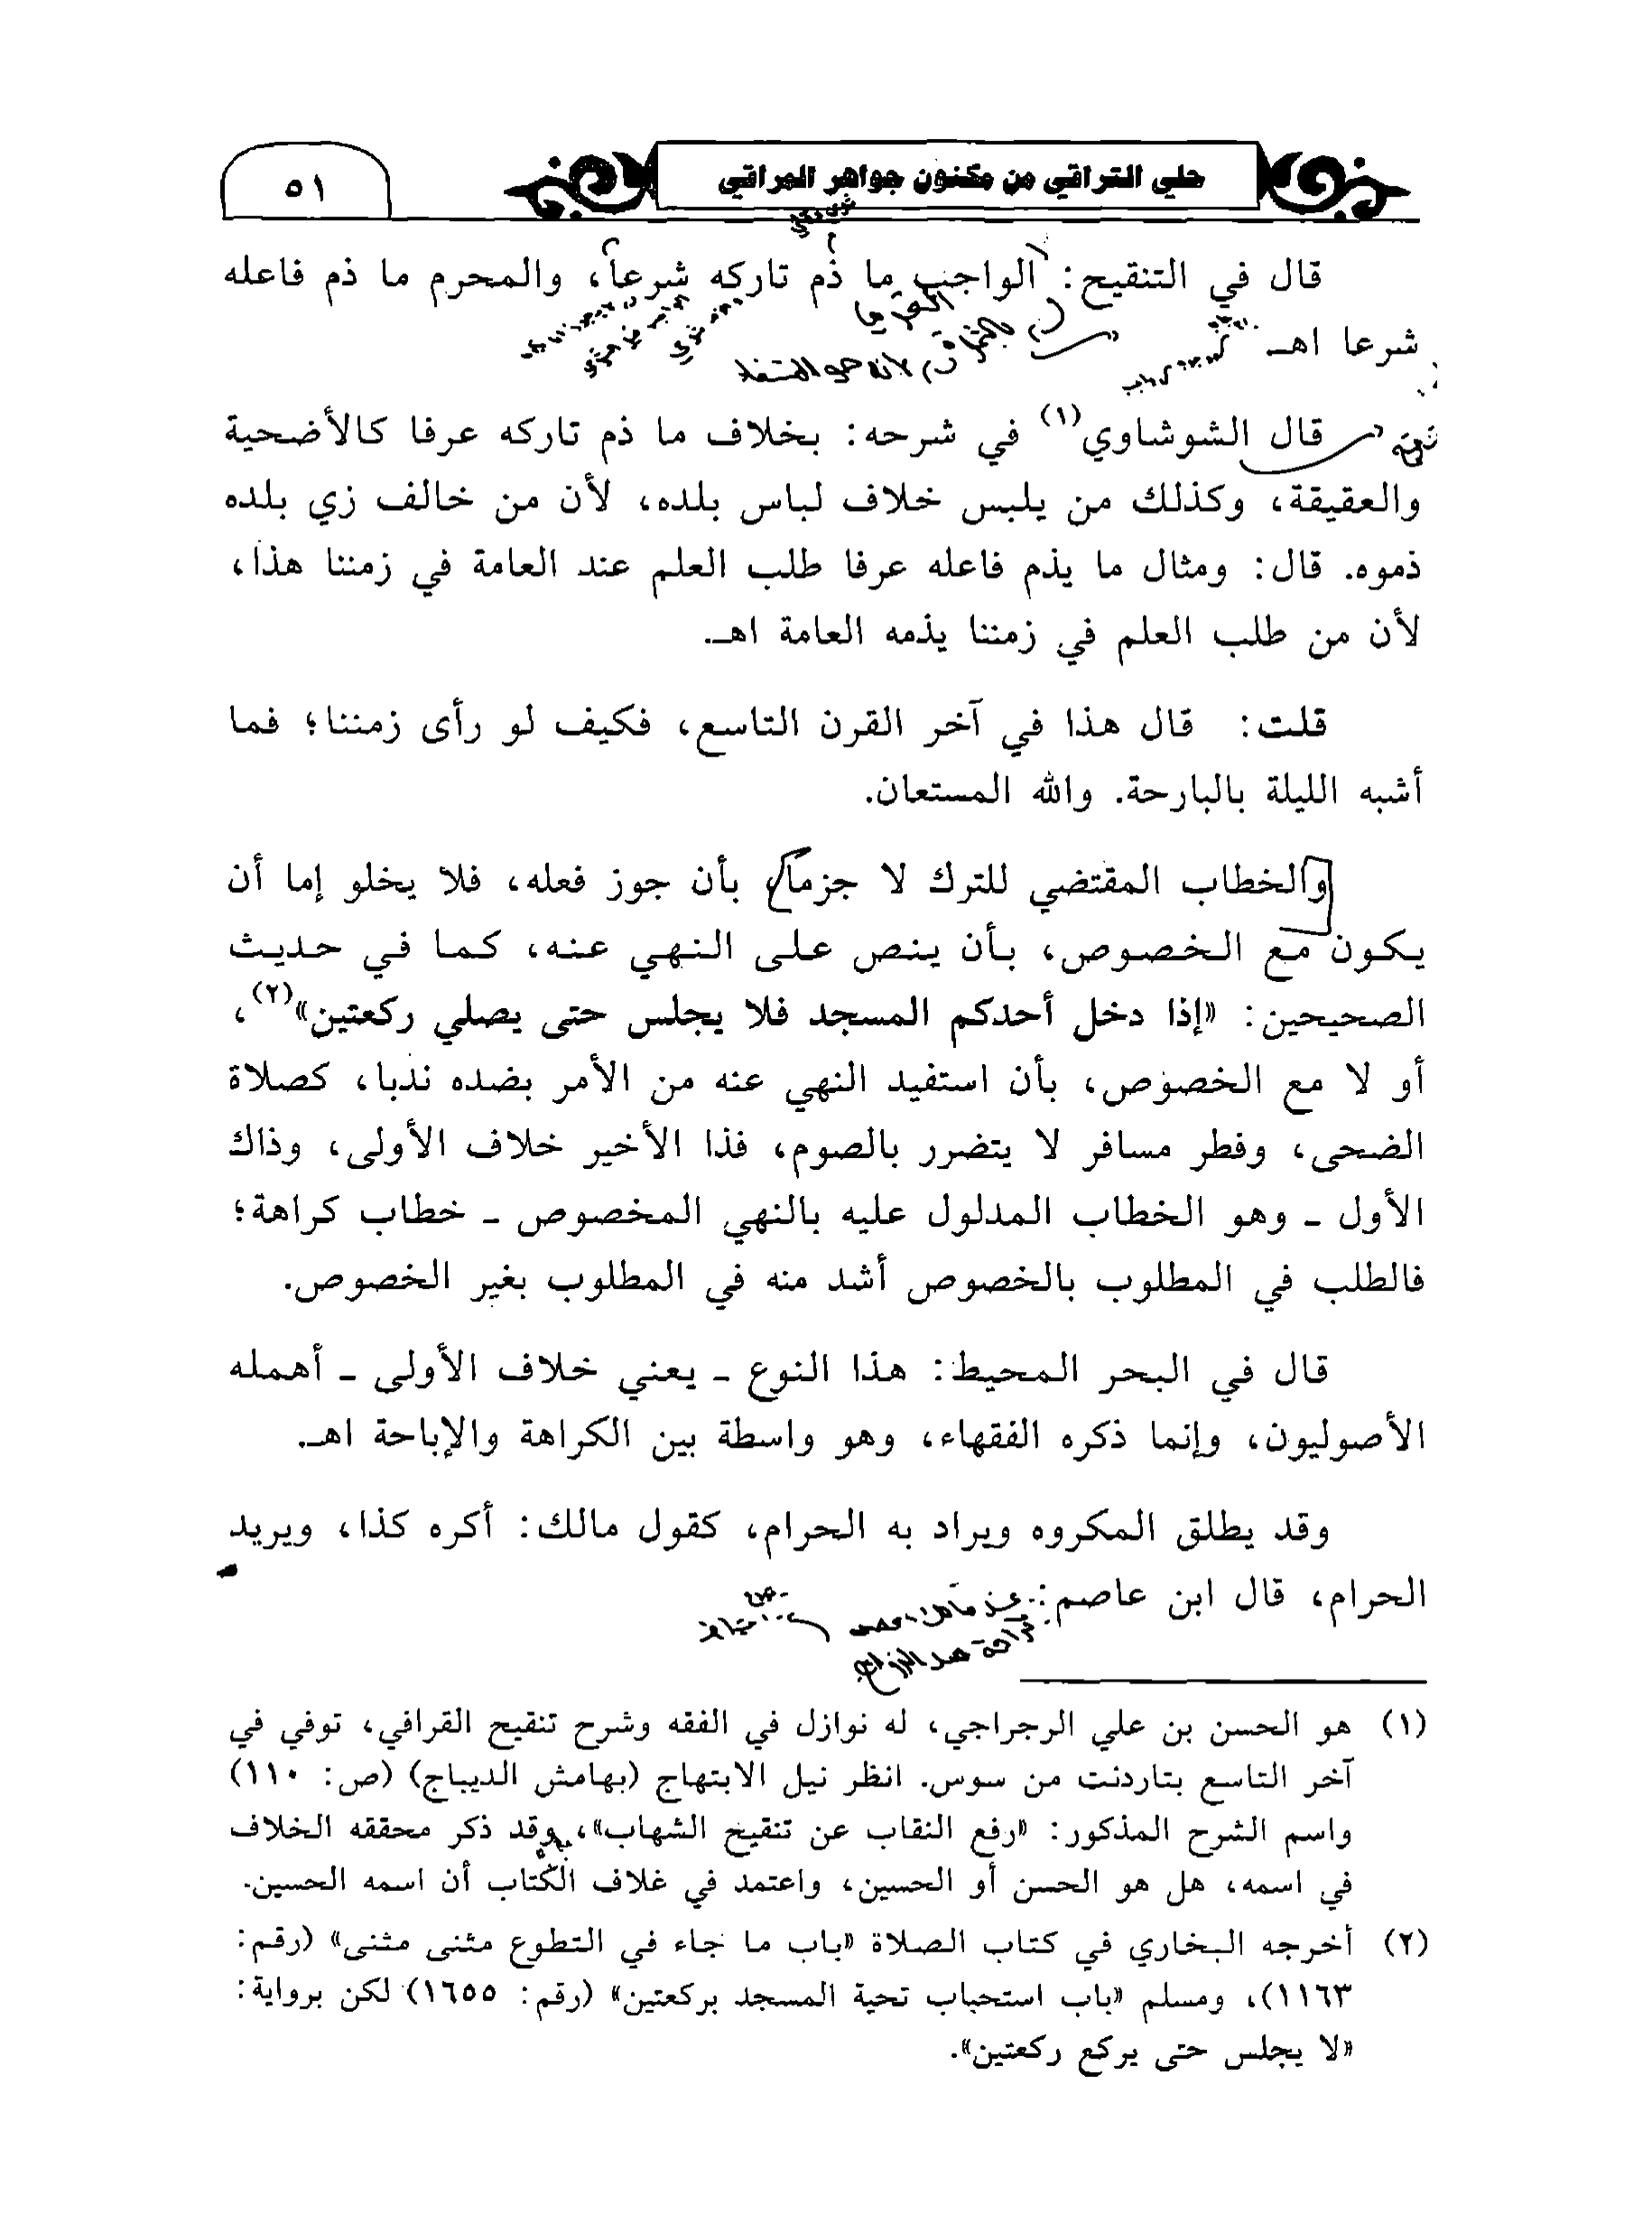 حلي التراقي من مكنون جواهر المراقي
٥١
قال في التنقيح: الواجب ما ذم تاركه شرعا، والمحرم ما ذم فاعله
شرعا اهـ
قال الشوشاوي(١) في شرحه: بخلاف ما ذم تاركه عرفا كالأضحية
والعقيقة، وكذلك من يلبس خلاف لباس بلده، لأن من خالف زي بلده
ذموه. قال: ومثال ما يذم فاعله عرفا طلب العلم عند العامة في زمننا هذا،
لأن من طلب العلم في زمننا يذمه العامة اهـ.
قلت: قال هذا في آخر القرن التاسع، فكيف لو رأى زمننا؛ فما
أشبه الليلة بالبارحة. والله المستعان.
والخطاب المقتضي للترك لا جزما بأن جوز فعله، فلا يخلو إما أن
يكون مع الخصوص، بأن ينص على النهي عنه، كما في حديث
الصحيحين: «إذا دخل أحدكم المسجد فلا يجلس حتى يصلي ركعتين»(٢)،
أو لا مع الخصوص، بأن استفيد النهي عنه من الأمر بضده ندبا، كصلاة
الضحى، وفطر مسافر لا يتضرر بالصوم، فذا الأخير خلاف الأولى، وذاك
الأول - وهو الخطاب المدلول عليه بالنهي المخصوص - خطاب كراهة؛
فالطلب في المطلوب بالخصوص أشد منه في المطلوب بغير الخصوص.
قال في البحر المحيط: هذا النوع - يعني خلاف الأولى - أهمله
الأصوليون، وإنما ذكره الفقهاء، وهو واسطة بين الكراهة والإباحة اهـ.
وقد يطلق المكروه ويراد به الحرام، كقول مالك: أكره كذا، ويريد
الحرام، قال ابن عاصم:
(١) هو الحسن بن علي الرجراجي، له نوازل في الفقه وشرح تنقيح القرافي، توفي في
آخر التاسع بتاردنت من سوس. انظر نيل الابتهاج (بهامش الديباج) (ص: ١١٠)
واسم الشرح المذكور: «رفع النقاب عن تنقيح الشهاب»، وقد ذكر محققه الخلاف
في اسمه، هل هو الحسن أو الحسين، واعتمد في غلاف الكتاب أن اسمه الحسين.
(٢) أخرجه البخاري في كتاب الصلاة «باب ما جاء في التطوع مثنى مثنى» (رقم:
١١٦٣)، ومسلم «باب استحباب تحية المسجد بركعتين» (رقم: ١٦٥٥) لكن برواية:
«لا يجلس حتى يركع ركعتين».